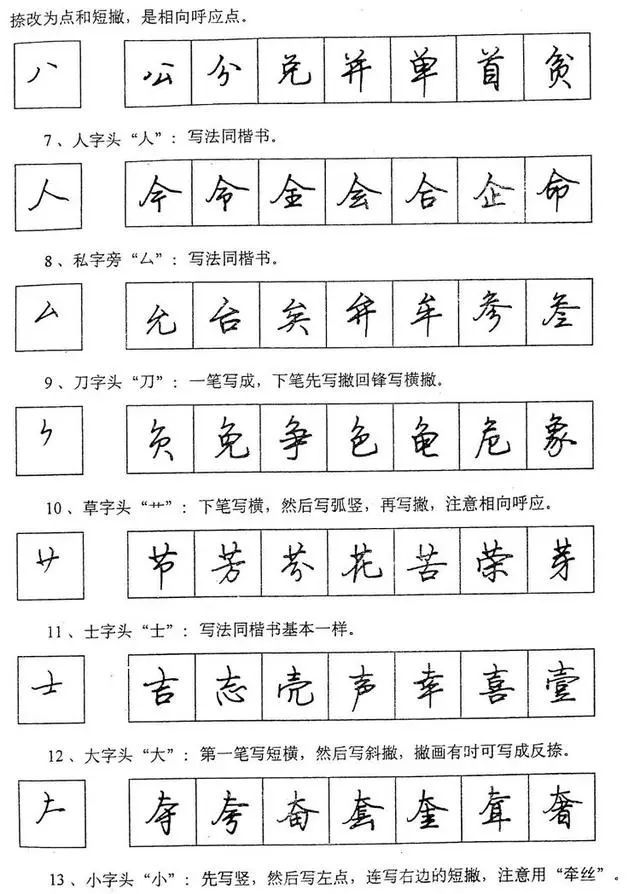 捺改为点和短撇，是相向呼应点。
八 公 分 兑 并 单 首 贫
7、人字头“人”：写法同楷书。
人 今 令 全 会 合 企 命
8、私字旁“厶”：写法同楷书。
厶 允 台 矣 弁 牟 参 叁
9、刀字头“刀”：一笔写成，下笔先写撇回锋写横撇。
⺈ 负 免 争 色 龟 危 象
10、草字头“艹”：下笔写横，然后写弧竖，再写撇，注意相向呼应。
艹 节 芳 芬 花 苦 荣 芽
11、士字头“士”：写法同楷书基本一样。
士 吉 志 壳 声 幸 喜 壹
12、大字头“大”：第一笔写短横，然后写斜撇，撇画有时可写成反捺。
夺 夸 奋 套 奎 奢
13、小字头“小”：先写竖，然后写左点，连写右边的短撇，注意用“牵丝”。